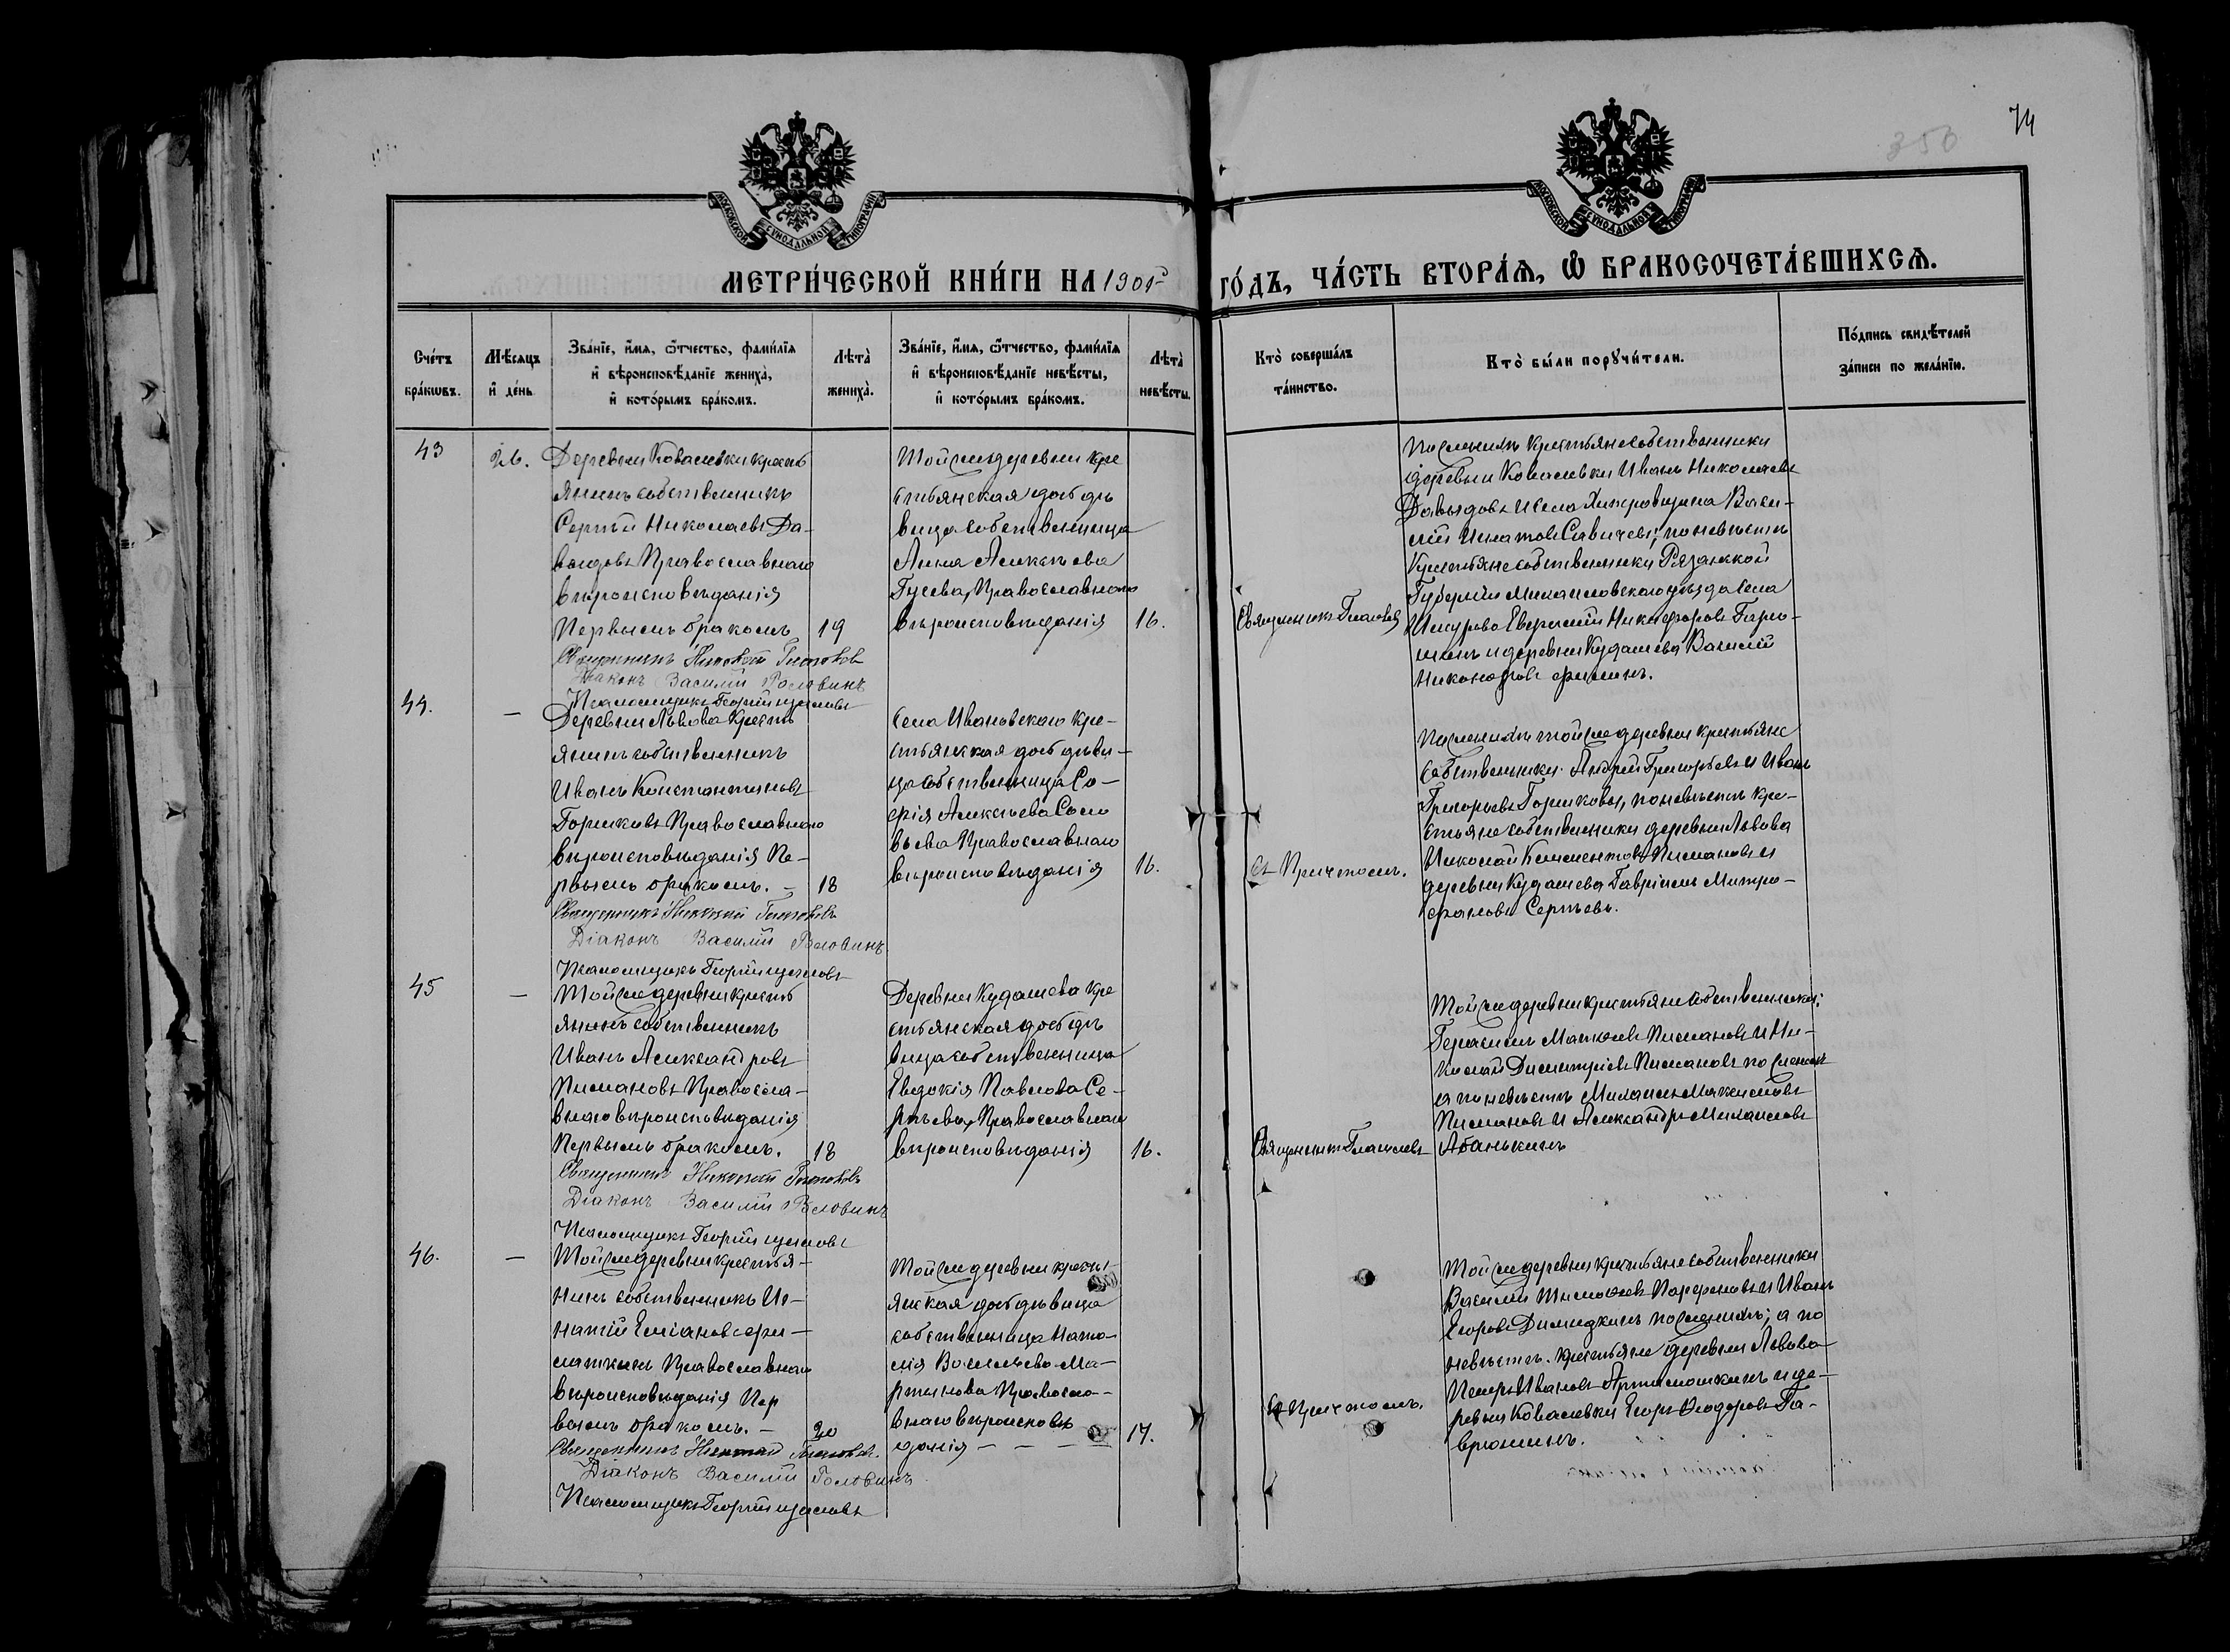 74
350
МОСКОВСКОЙ СѴНОДАЛЬНОЙ ТИПОГРАФІИ
МОСКОВСКОЙ СѴНОДАЛЬНОЙ ТИПОГРАФІИ
МЕТРИ́ЧЕСКОЙ КНИ́ГИ НА 1905
ГО́ДЪ, ЧА́СТЬ ВТОРА́Ѧ, Ѽ БРАКОСОЧЕТА́ВШИХСѦ.
Сче́тъ
бра́кѡвъ.
Мѣ́сѧцъ
и҆ де́нь
Зва́нїе, и҆́мѧ, ѻ҆́тчество, фами́лїѧ
и҆ вѣроисповѣ́данїе жениха̀,
и҆ кото́рымъ бра́комъ.
Лѣта̀
жениха̀.
Зва́нїе, и҆́мѧ, ѻ҆́тчество, фами́лїѧ
и҆ вѣроисповѣ́данїе невѣ́сты,
и҆ кото́рымъ бра́комъ.
Лѣта̀
невѣ́сты.
Кто̀ соверша́лъ
та́инство.
Кто̀ бы́ли порꙋчи́тели.
По́дпись свидѣ́телей
за́писи по жела́нїю.
43
26.
Деревни Ковалевки кресть
янинъ собственникъ
Сергѣй Николаевъ Да-
выдовъ Православнаго
вѣроисповѣданія
Первымъ бракомъ
19
Священникъ Николай
Діаконъ Василій Головинъ
Псаломщикъ Георгій
Той же деревни кре
стьянская дочь дѣ
вица собственница
Анна Алексѣева
Гусева, Православнаго
вѣроисповѣданія
16.
Священникъ
По женихѣ крестьяне собственники
деревни Ковалевки Иванъ Николаевъ
Давыдовъ и села Васи-
лій Савичевъ; по невѣстѣ
Крестьяне собственники Рязанской
Губерніи Михайловскаго уѣзда села
Никифоровъ
и деревни Кудашева Василій
Никоноровъ
44.
—
Деревни Львова кресть
янинъ собственникъ
Иванъ Константиновъ
Горшковъ Православнаго
вѣроисповѣданія Пе-
рвымъ бракомъ. -
18
Священникъ Николай
Діаконъ Василій Головинъ
Псаломщикъ Георгій
Села Ивановскаго кре-
стьянская дочь дѣви-
ца собственница Со-
фія Алексѣева Соло
вьева Православнаго
вѣроисповѣданія
16.
Съ Причтомъ.
По женихѣ той же деревни крестьяне
собственники Андрей Григорьевъ и Иванъ
Григорьевъ Горшковы, по невѣстѣ кре-
стьяне собственники деревни Львова
Николай Климентовъ и
деревни Кудашева Гавріилъ Митро-
фановъ Сергѣевъ.
45
—
Той же деревни кресть
янинъ собственникъ
Иванъ Александровъ
Православ-
внаго вѣроисповѣданія
Первымъ бракомъ.
18
Священникъ Николай
Діаконъ Василій Головинъ
Псаломщикъ Георгій
Деревни Кудашева кре
стьянская дочь дѣ
вица собственница
Евдокія Павлова Се-
ргѣева, Православнаго
вѣроисповѣданія
16.
Священникъ
Той же деревни крестьяне собственники:
Герасимъ и Ни-
колай Димитріевъ по женихѣ
а по невѣстѣ Михаилъ Максимовъ
и Александръ Михаиловъ
Абанькинъ
46.
—
Той же деревни крестья-
нинъ собственникъ Иг-
натій
Православнаго
вѣроисповѣданія Пер
вымъ бракомъ. -
20
Священникъ Николай
Діаконъ Василій Головинъ
Псаломщикъ Георгій
Той же деревни кресть-
янская дочь дѣвица
собственница Ната-
лія Васильева Ма-
ртынова Правосла-
внаго вѣроисповѣ
данія - - - -
17.
Съ Причтомъ.
Той же деревни крестьяне собственники
Василій Тимофеевъ Парфеновъ и Иванъ
Егоровъ по женихѣ; а по
невѣстѣ. крестьяне деревни Львова
Петръ Ивановъ и де-
ревни Ковалевки Егоръ Ѳеодоровъ Га-
врюшинъ.